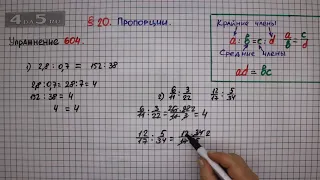 § 20. Пропорции.
Упражнение 604.
Крайние члены
a : b = c : d
a/b = c/d
Средние члены
ad = bc
1) 2,8 : 0,7 = 152 : 38
2,8 : 0,7 = 28 : 7 = 4
152 : 38 = 4
4 = 4
2) 6/11 : 3/22 12/17 : 5/34
= 4
12/17 : 5/34 =